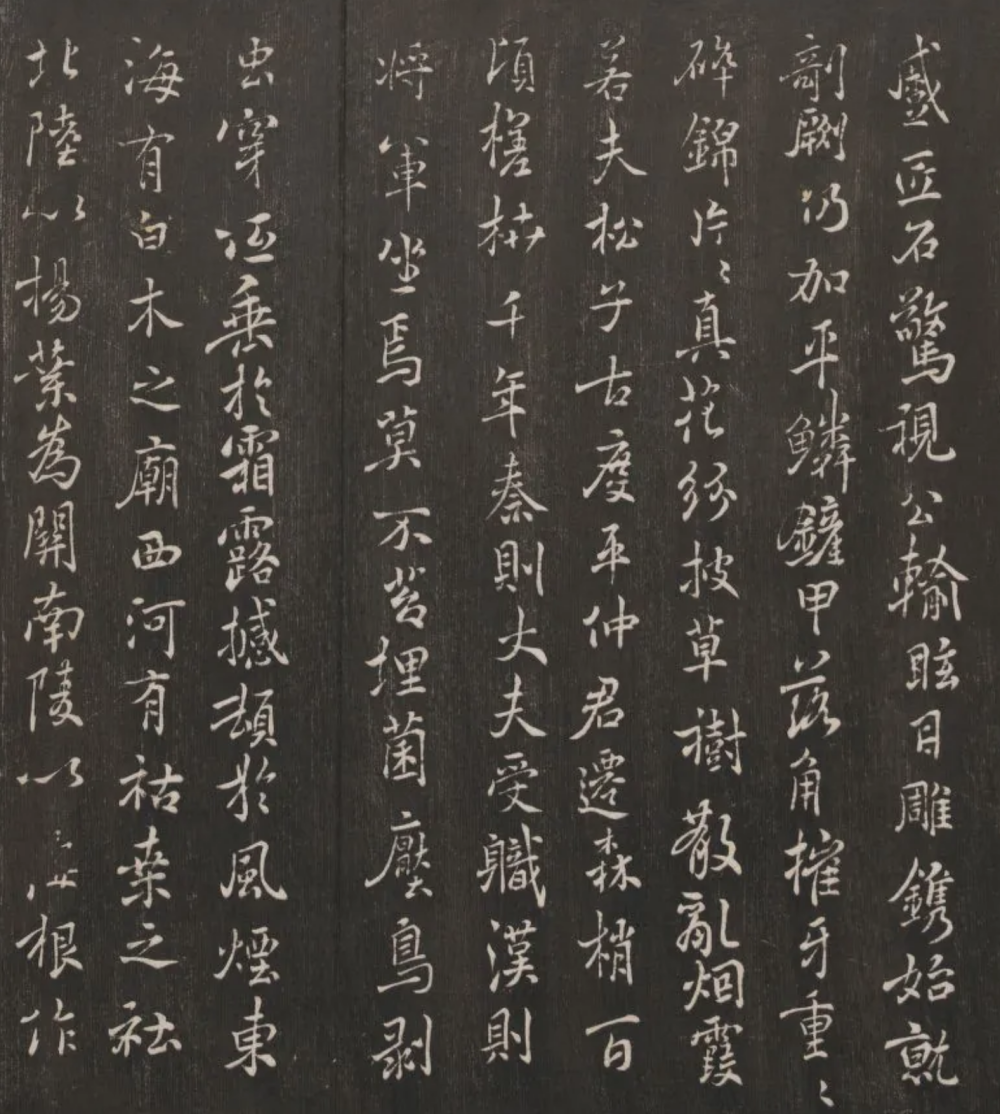 蹙匠石驚視公輸眩目雕鐫始就
剞劂仍加平鱗鏟甲落角摧牙重〻
碎錦片〻真花紛披草樹散亂烟霞
若夫松子古度平仲君遷森梢百
頃槎枿千年秦則大夫受軄漢則
将軍坐焉莫不苔埋菌壓鳥剥
虫穿低垂於霜露撼頓於風煙東
海有白木之廟西河有枯桒之社
北陸以楊葉為關南陵以梅根作